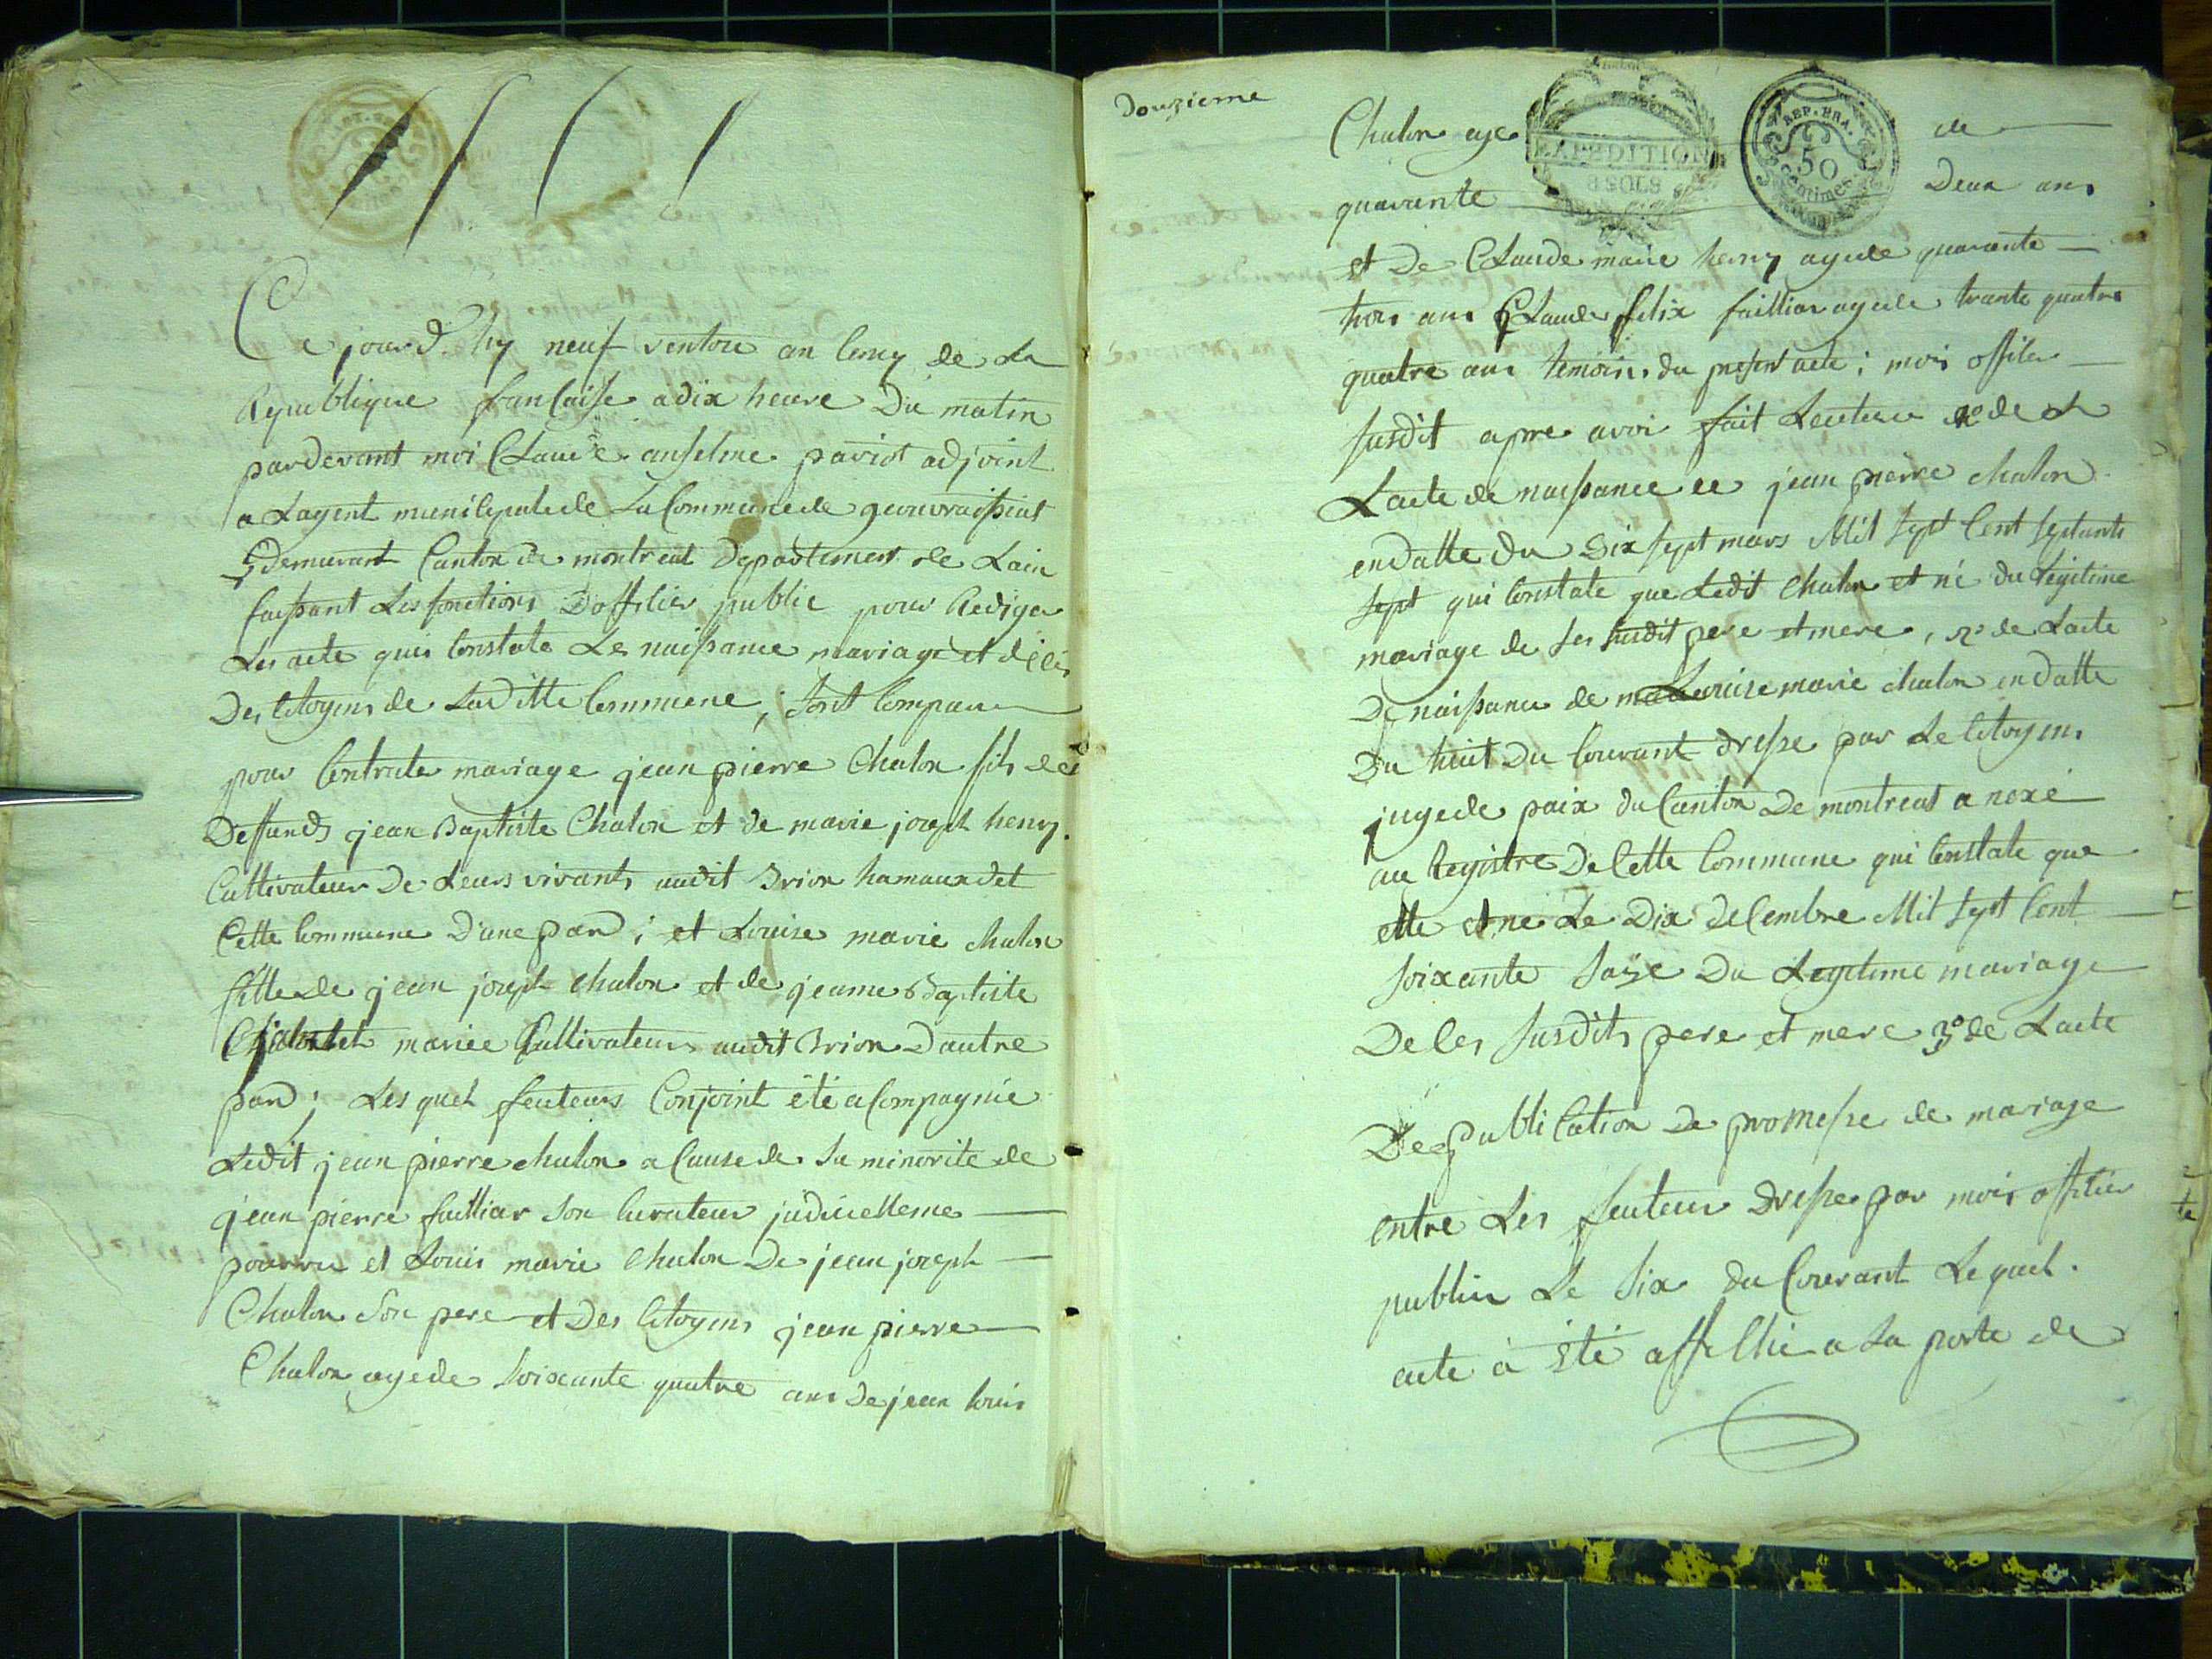 Ce jourd. huy neuf ventose an cinq de La
Republique francaisse a dix heure Du matin
pardevant moi Claude anselme pariot adjoint
a Lagent municipale de La Commune de geovraissiat
Ydemurant Canton de montreal Departement de Lain
faissant Les fonctions D'officier public pour Rediger
Les acte qui Constate Le naissance mariage et décès
Des Citoyens de Laditte Commune, sont Comparu
pour Contracter mariage jean pierre Chalon fils de
Deffunds jean Baptiste Chalon et de marie joseph henry.
Cultivateur De Leurs vivants audit Brion hamaux det
Cette Commune D'une part; et Louise marie chalon
fille de jean joseph chalon et de jeanne Baptiste
mariee Cultivateurs audit Brion D'autre
part; Les quel feuteurs Conjoint été acompagnie
Ledit jean pierre chalon a Cause de Sa minorite de
jean pierre failliar Son Curateur judicielleme
pourvu et Louis marie chalon De jean joseph
Chalon Son pere et Des Citoyens jean pierre
Chalon age de soixante quatre ans De jean louis
Douzieme
EXPEDITION
8 SOLS
REP. FRA.
50
centimes.
Chalon age de
quarante Deux ans
et De Claude marie henry agee de quarante
trois ans Claude felix failliar age de trante quatre
quatre ans temoins du present acte; mois officier
susdit apres avoir fait Lecture 1º de L
Lacte de naissance de jean pierre chalon
en datte du Dix sept mars Mil sept Cent septante
sept qui Constate que Ledit chalon et né du Légitime
mariage de ses susdit pere et mere, 2º de Lacte
De naissance de Louise marie chalon en datte
Du huit Du Courant dresse par Le Citoyens
juge de paix du Canton De montreal anexé
au Registre De Cette Commune qui Constate que
elle et ne Le Dix decembre Mil sept Cent
soixante saize Du Legitime mariage
De ses susdits pere et mere 3º de Lacte
De publication De promesse de mariage
entre Les feuteur dresse par mois officier
publin Le six du Courant Lequel.
acte à été affiché a La porte de